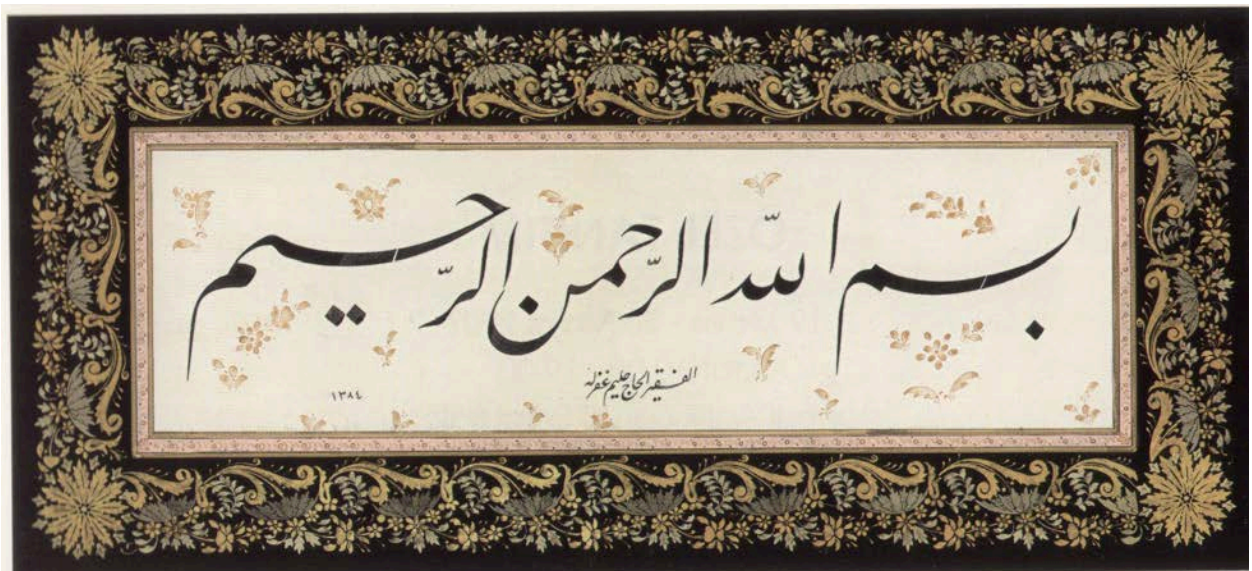 بسم الله الرحمن الرحيم
الفقير الحاج حليم غفرله
١٣٨٤